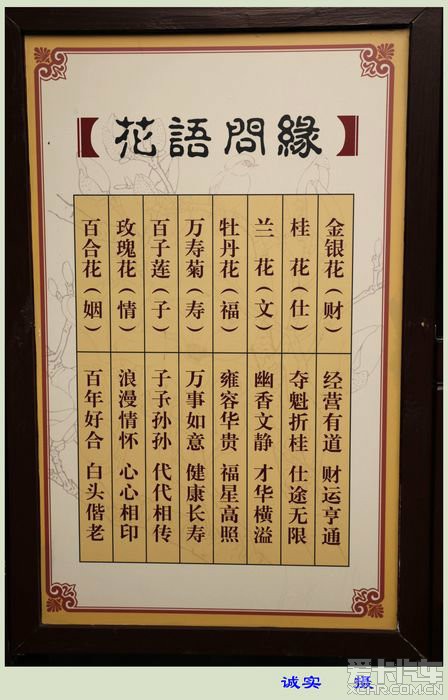 【花語問緣】
金银花（财）
经营有道 财运亨通
桂花（仕）
夺魁折桂 仕途无限
兰花（文）
幽香文静 才华横溢
牡丹花（福）
雍容华贵 福星高照
万寿菊（寿）
万事如意 健康长寿
百子莲（子）
子子孙孙 代代相传
玫瑰花（情）
浪漫情怀 心心相印
百合花（姻）
百年好合 白头偕老
爱卡汽车
XCAR.COM.CN
诚实 摄